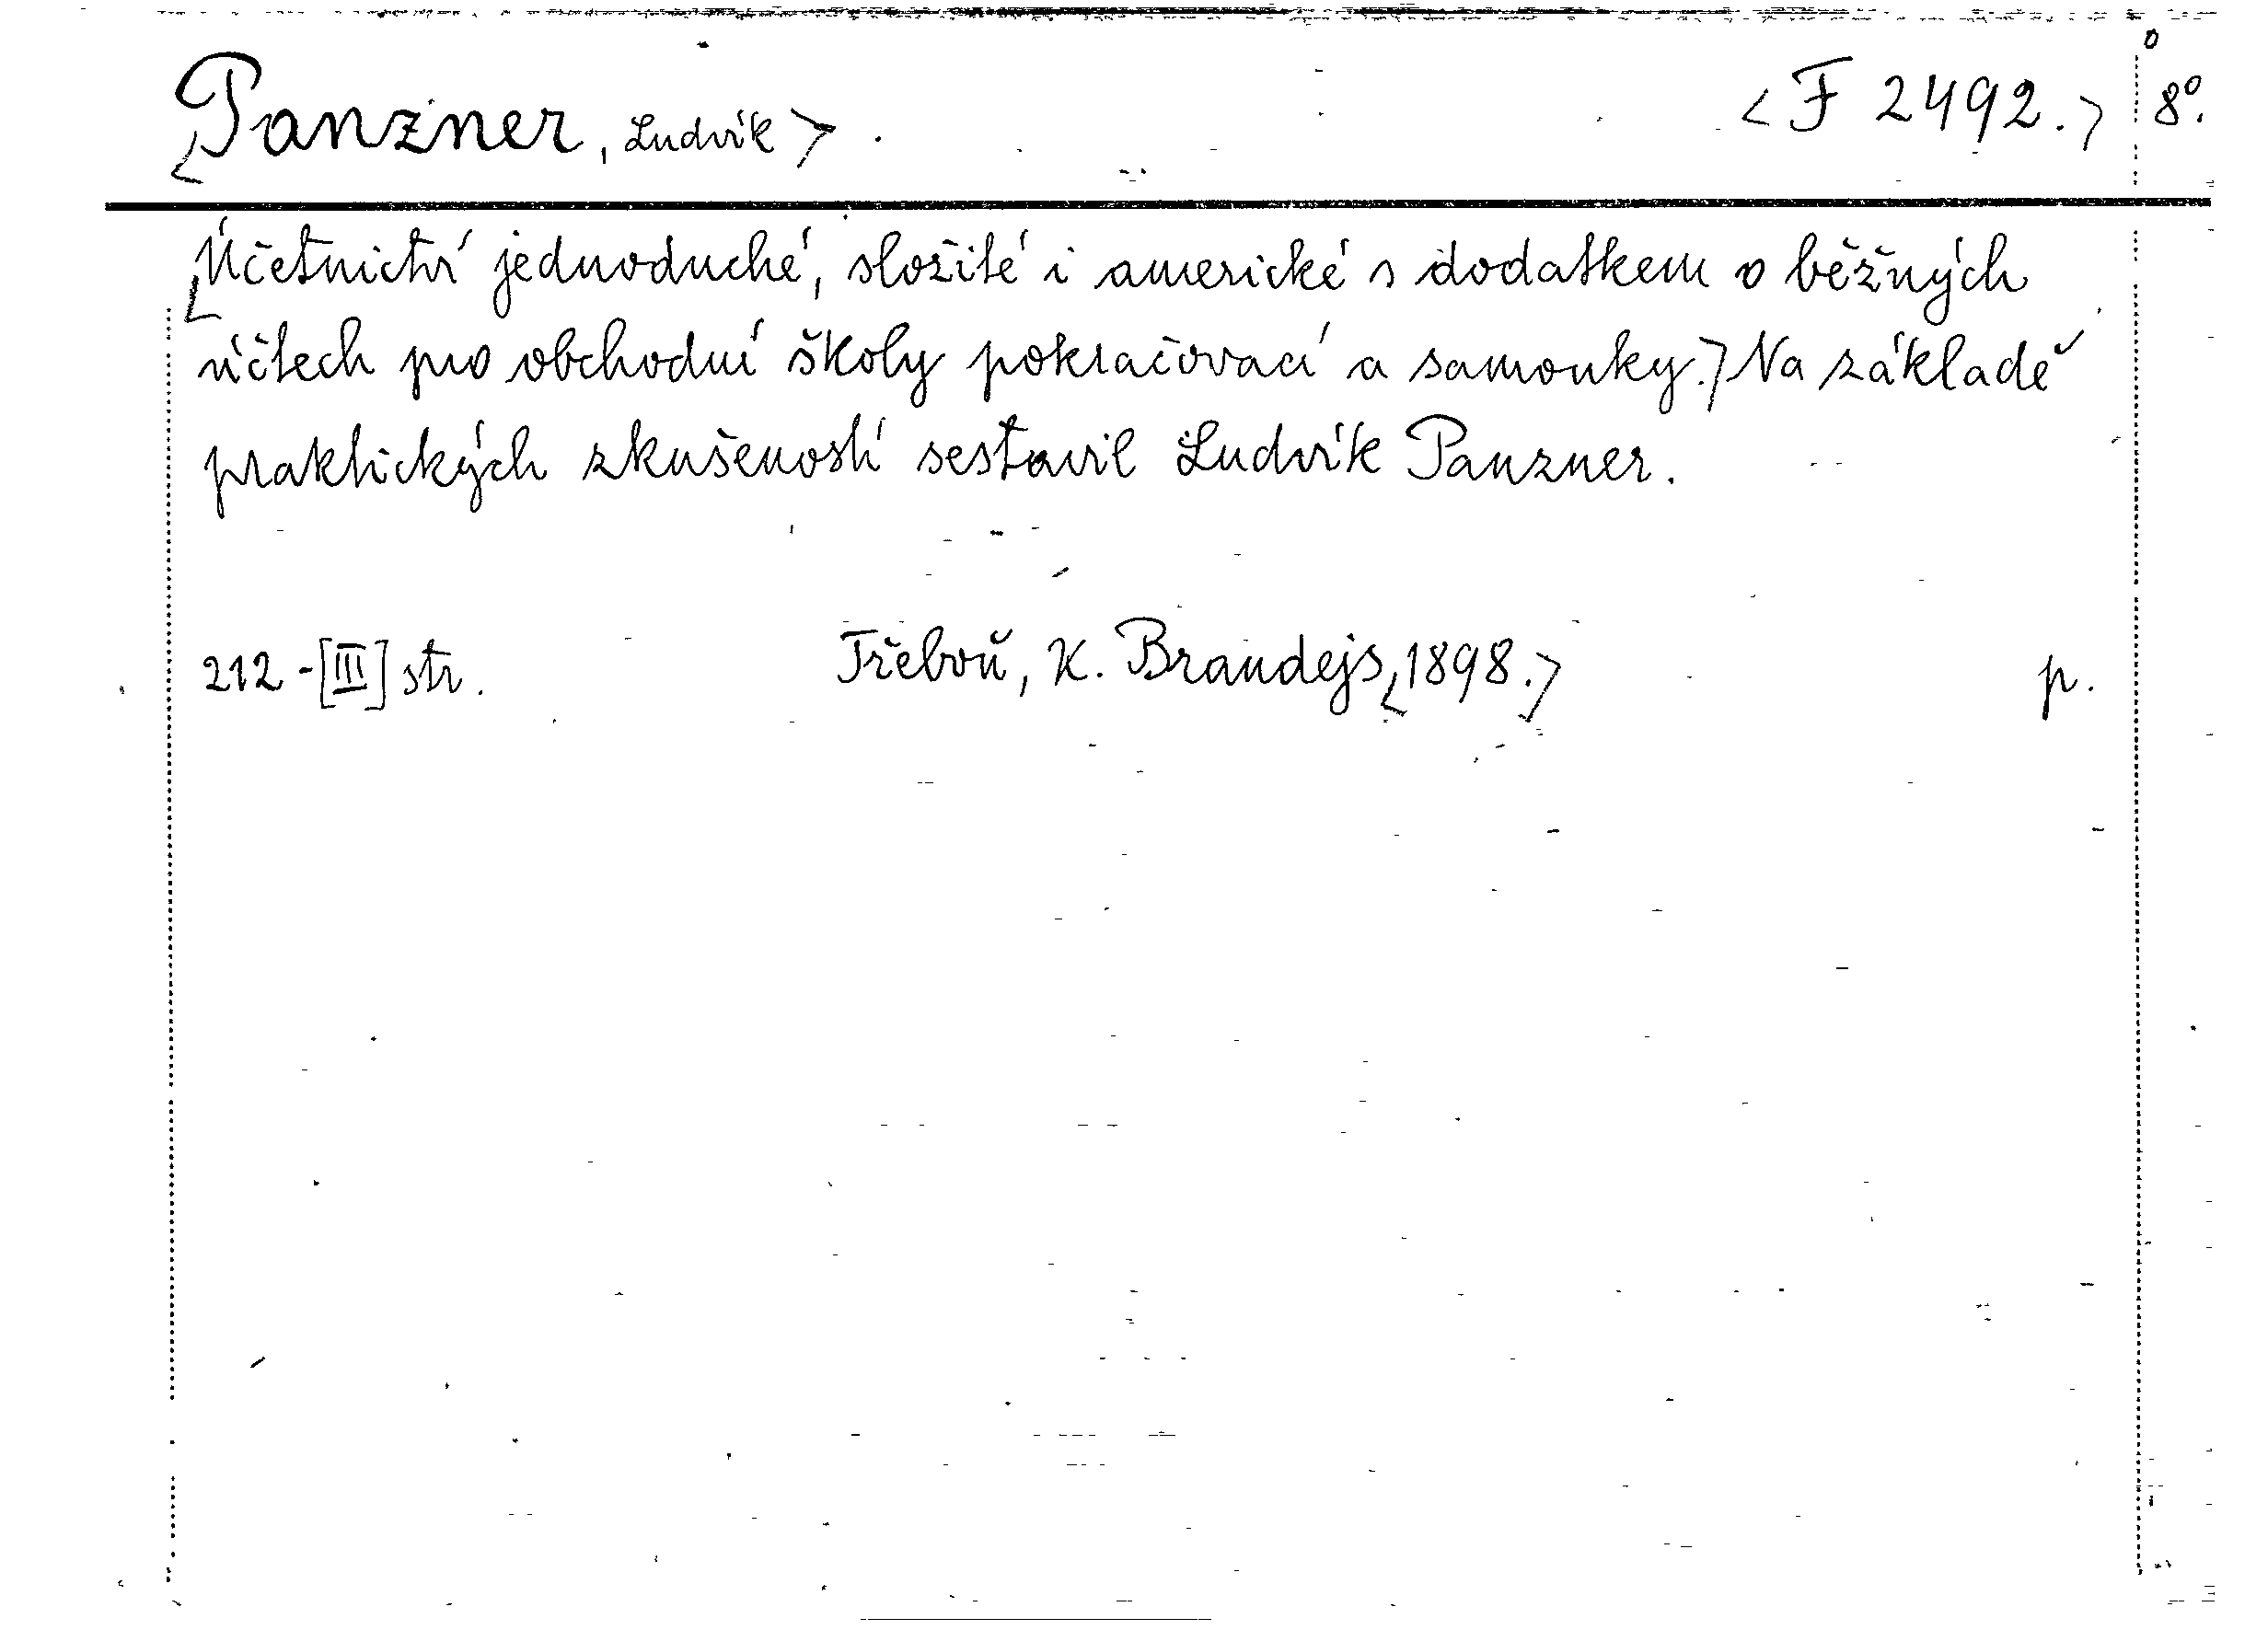 <Panzner, Ludvík>. <F 2492.> 8°.
<Účetnictví jednoduché, složité i americké s dodatkem o běžných
účtech pro obchodní školy pokračovací a samouky.> Na základě
praktických zkušeností sestavil Ludvík Panzner.
212 - [III] str. Třeboň, K. Brandejs, <1898.> p.